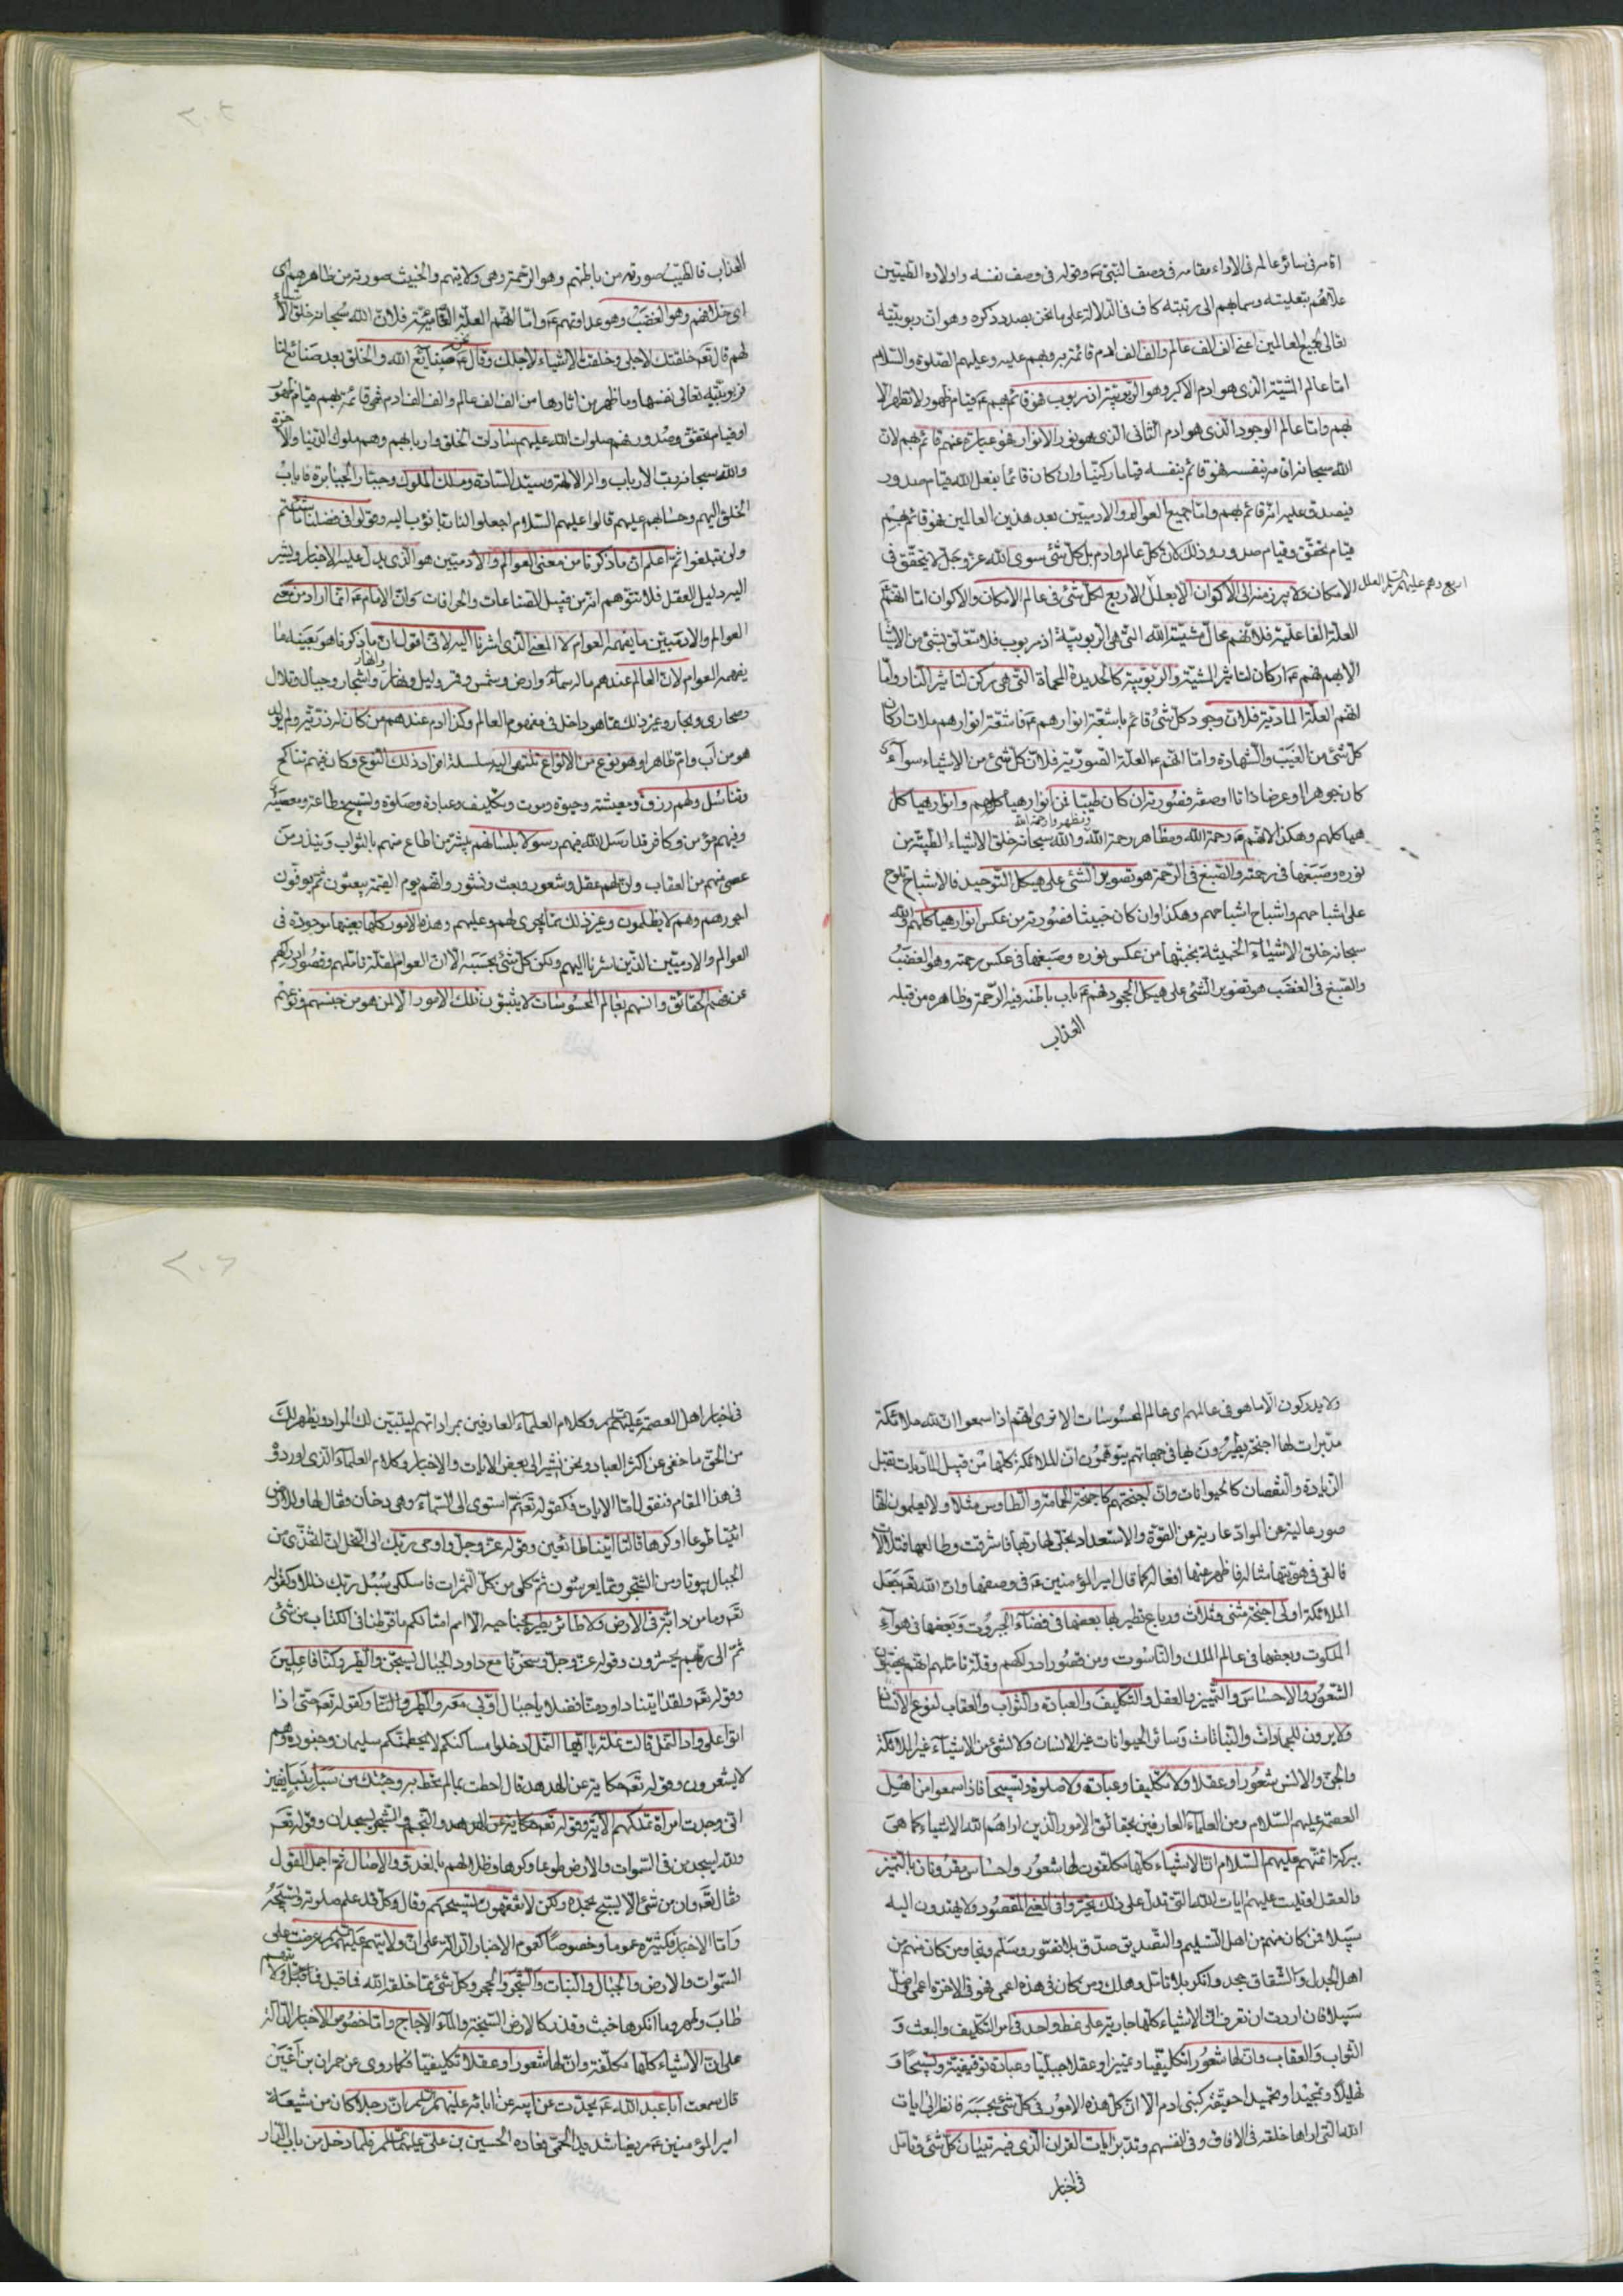 اقامه فى سائر عالمه فى الاداء مقامه فى وصف النبى ص وقوله فى وصف نفسه واولاده الطيبين
علاهم بتعليته وسما بهم الى رتبته كاف فى الدلالة على ما نحن بصدد ذكره وهو ان ربوبيته
تعالى لجميع العالمين اعنى الف الف عالم والف الف ادم قائمة به وبهم عليه وعليهم الصلوة والسلام
امّا عالم المشيّة الذى هو ادم الاكبر وهو الربوبيّة اذ مربوب فهو قائم بهم ع قيام ظهور لا تظهر الا
بهم وامّا عالم الوجود الذى هو ادم الثانى الذى هو نور الانوار فهو عبارة عنهم قائم بهم لان
الله سبحانه اقامه بنفسه فهو قائم بنفسه قياما ركنيّا وان كان قائما بفعل الله قيام صدور
فيصدق عليه انّه قائم بهم وامّا جميع العوالم والادميين بعد هذين العالمين فهو قائم بهم
قيام تحقّق وقيام صدور وذلك لان كلّ عالم وادم بل كلّ شئ سوى الله عزّ وجلّ لا يتحقّق فى
الامكان ولا يبرز منه الى الاكوان الا بعلل الاربع لكلّ شئ فى عالم الامكان والاكوان امّا انّهم
اربع وهم عليهم السلم العلل
العلّة الفاعليّة فلانّهم محالّ مشيّة الله التى هى الربوبيّة اذ مربوب فلا متعلّق بشئ من الاشيا
الا بهم فهم ع اركان لتاثير المشيّة والربوبيّة كالحديدة المحماة التى هى ركن لتاثير النار وامّا
انّهم العلّة الماديّة فلان وجود كلّ شئ قائم باشعّة انوارهم ع فاشعّة انوارهم ملات اركان
كلّ شئ من الغيب والشهادة وامّا انّهم ع العلّة الصّوريّة فلان كلّ شئ من الاشياء سوآء
كان جوهرا او عرضا ذاتا او صفة فصورته ان كان طيبا من انوار هياكلهم وانوار هياكل
هياكلهم وهكذا لانّهم ع رحمة الله ومظاهر رحمة الله والله سبحانه خلق الاشياء الطيّبة من
ومظهر وا رحمة الله
نوره وصبغها فى رحمته والصبغ فى الرحمة هو تصوير الشئ على هيكل التوحيد فالاشباح تلوح
على اشباحهم واشباح اشباحهم وهكذا وان كان خبيثا فصورته من عكس انوار هياكلهم والله
سبحانه خلق الاشياء الخبيثة بخبثها من عكس نوره وصبغها فى عكس رحمته وهو الغضب
والصّبغ فى الغضب هو تصوير الشئ على هيكل الجحود فهم ع باب باطنه فيه الرحمة وظاهره من قبله
العذاب
العذاب فالطيّب صورته من باطنهم وهو الرحمة وهى ولايتهم والخبيث صورته من ظاهرهم اى
اى خلافهم وهو الغضب وهو عداوتهم ع وامّا انّهم العلّة الغائيّة فلان الله سبحانه خلق الاشياء
لهم قال تع خلقتك لاجلى وخلقت الاشياء لاجلك وقال ع نحن صنايع الله والخلق بعد صنائع لنا
فربوبيّته تعالى نفسها وما ظهر من اثارها من الف الف عالم والف الف ادم فهى قائمة بهم قيام ظهور
او قيام تحقّق وصدور فهم صلوات الله عليهم سادات الخلق واربابهم وهم ملوك الدنيا والاخرة
والله سبحانه ربّ الارباب واله الالهة وسيّد السّادة وملك الملوك وجبّار الجبابرة فاياب
الخلق اليهم وحسابهم عليهم قالوا عليهم السلام اجعلوا لنا ربا نؤب اليه وقولوا فى فضلنا ما شئتم
ولن تبلغوا ثمّ اعلم انّ ما ذكرنا من معنى العوالم والادميّين هو الذى يدلّ عليه الاخبار ويشير
اليه دليل العقل فلا تتوهّم انّه من قبيل الصّناعات والخرافات وانّ الامام ع انّما اراد من معنى
العوالم والادميّين ما يفهمه العوام لا المعنى الذى اشرنا اليه لانى اقول ان ما ذكرنا هو بعينه ما
يفهمه العوام لان العالم عندهم ما له سمآء وارض وشمس وقمر وليل ونهار وانهار واشجار وجبال وتلال
وصحارى وبحار وغير ذلك ممّا هو داخل فى مفهوم العالم وكذا ادم عندهم من كان له ذريّة ولم يولد
هو من اب وامّ ظاهرا وهو نوع من الانواع تنتهى اليه سلسلة افراد ذلك النوع وكان فيهم تناكح
وتناسل ولهم رزق ومعيشة وحيوة وموت وتكليف وعبادة وصلوة وتسبيح وطاعة ومعصية
وفيهم مؤمن وكافر قد ارسل الله فيهم رسولا بلسانهم يبشّر من اطاع منهم بالثواب وينذر من
عصى منهم من العقاب وانّ لهم عقل وشعور وبعث ونشور وانّهم يوم القيمة يبعثون ثمّ يوفون
اجورهم وهم لا يظلمون وغير ذلك ممّا يجرى لهم وعليهم وهذه الامور كلّها بعينها موجودة فى
العوالم والادميّين الذين اشرنا اليهم ولكن كلّ شئ بحسبه الا ان العوام لقلّة تاملهم وقصور ادراكهم
عن فهم الحقائق وانسهم بعالم المحسوسات لا يثبتون تلك الامور الا لمن هو من جنسهم ونوعهم
ولا يدركون الا ما هو فى عالمهم اى عالم المحسوسات الا ترى انّهم اذا سمعوا ان لله ملائكة
مدبرات لها اجنحة يطيرون بها فى جهاتهم يتوهّمون ان الملائكة كلّها من قبيل الماديات تقبل
الزيادة والنقصان كالحيوانات وان اجنحتهم كاجنحة الحمامة والطاوس مثلا ولا يعلمون انّها
صور عالية عن الموادّ عارية عن القوّة والاستعداد تجلى لها ربها فاشرقت وطالعها فتلألأت
فالقى فى هويّتها مثاله فاظهر عنها افعاله كما قال امير المؤمنين ع فى وصفها وان الله تع جعل
الملائكة اولى اجنحة مثنى وثلاث ورباع تطير بها بعضها فى فضآء الجبروت وبعضها فى هوآء
الملكوت وبعضها فى عالم الملك والناسوت ومن قصور ادراكهم وقلّة تاملهم انّهم يخصّون
الشعور والاحساس والتمييز بالعقل والتكليف والعبادة والثواب والعقاب لنوع الانسان
ولا يرون للجمادات والنباتات وسائر الحيوانات غير الانسان ولا لشئ من الاشيآء غير الملائكة
والجن والانس شعورا وعقلا ولا تكليفا وعبادة ولا صلوة وتسبيحا فاذا سمعوا من اهل
العصمة عليهم السلام ومن العلمآء العارفين بحقائق الامور الذين اراهم الله الاشياء كما هى
ببركة ائمّتهم عليهم السلام انّ الاشياء كلّها مكلّفون لها شعور واحساس مقرونان بالتميز
والعقل وتليت عليهم ايات الله التى تدلّ على ذلك تحيّروا فى المعنى المقصود ولا يهتدون اليه
سبيلا فمن كان منهم من اهل التسليم والتصديق صدّق بلا تصوّر وسلّم ونجا ومن كان منهم من
اهل الجدل والشقاق جحد وانكر بلا تامّل وهلك ومن كان فى هذه اعمى فهو فى الاخرة اعمى واضلّ
سبيلا فان اردت ان تعرف ان الاشياء كلّها جارية على نمط واحد فى امر التكليف والبعث و
الثواب والعقاب وان لها شعورا تكليفيّا وتمييزا وعقلا جبليّا وعبادة توقيفيّة وتسبيحا و
تهليلا وتمجيدا وتحميدا حقيقة كبنى ادم الا ان كلّ هذه الامور فى كلّ شئ بحسبه فانظر الى ايات
الله التى اراها خلقه فى الافاق وفى انفسهم وتدبر ايات القران الذى فيه تبيان كلّ شئ وتامّل
فى اخبار
فى اخبار اهل العصمة عليهم السلم وكلام العلمآء العارفين بمراداتهم ليتبيّن لك المراد ويظهر لك
من الحق ما خفى عن اكثر العباد ونحن نشير الى بعض الايات والاخبار وكلام العلمآء الذى اوردو
فى هذا المقام فنقول امّا الايات فكقوله تع ثمّ استوى الى السّمآء وهى دخان فقال لها وللارض
ائتيا طوعا او كرها قالتا اتينا طائعين وقوله عز وجلّ واوحى ربّك الى النحل ان اتّخذى من
الجبال بيوتا ومن الشجر وممّا يعرشون ثمّ كلى من كلّ الثمرات فاسلكى سبل ربّك ذللا وكقوله
تع وما من دابّة فى الارض ولا طائر يطير بجناحيه الا امم امثالكم ما فرّطنا فى الكتاب من شئ
ثمّ الى ربّهم يحشرون وقوله عزّ وجلّ وسخّرنا مع داود الجبال يسبّحن والطير وكنّا فاعلين
وقوله تع ولقد اتينا داود منّا فضلا يا جبال اوّبى معه والطير والنّا وكقوله تع حتى اذا
اتوا على واد النمل قالت نملة يا ايّها النمل ادخلوا مساكنكم لا يحطمنّكم سليمان وجنوده وهم
لا يشعرون وقوله تع حكاية عن الهدهد قال احطت بما لم تحط به وجئتك من سبأ بنبأ يقين
انى وجدت امرأة تملكهم الاية وقوله تع حكاية عن الهدهد والنجم والشجر يسجدان وقوله تع
ولله يسجد من فى السّموات والارض طوعا وكرها وظلالهم بالغدو والاصال ثمّ اجمل القول
فقال تع وان من شئ الا يسبّح بحمده ولكن لا تفقهون تسبيحهم وقال وكلّ قد علم صلوته وتسبيحه
وامّا الاخبار فكثيرة عموما وخصوصا كعموم الاخبار الدالّة على ان ولايتهم عليهم السلم عرضت على
السّموات والارض والجبال والنبات والشجر والحجر وكلّ شئ ممّا خلقه الله فما قبل ولايتهم
طاب وطهر وما انكرها خبث وفسد كالارض السّبخة والمآء الاجاج وامّا خصوص الاخبار الدالّة
على انّ الاشياء كلّها مكلّفة وانّ لها شعورا وعقلا تكليفيّا فكما روى عن حمران بن اعين
قال سمعت ابا عبد الله ع يحدّث عن ابيه عن ابائه عليهم السلم ان رجلا كان من شيعة
امير المؤمنين ع مريضا شديد الحمّى فعاده الحسين بن على عليهما السلم فلمّا دخل من باب الدار